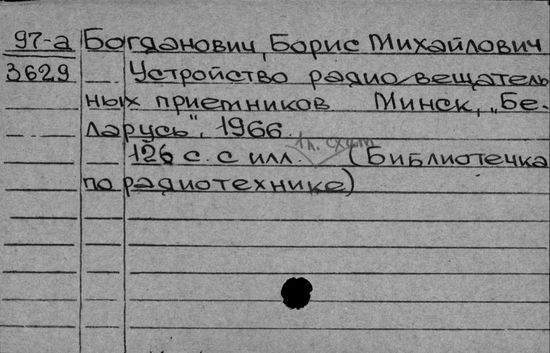 97-а Богданович, Борис Михайлович
3629 Устройство радиовещатель
ных приемников Минск, „Бе-
ларусь", 1966.
1 л. схем
126 с. с илл. (Библиотечка
по радиотехнике)